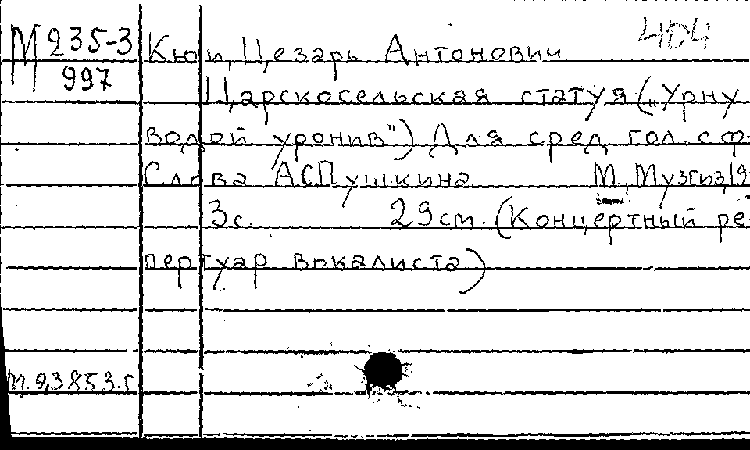 М 235-3 Кюи, Цезарь Антонович 404
997
Царскосельская статуя („Урну
водой уронив") Для сред. гол. с ф-
Слова А.С.Пушкина М., Музгиз, 19
3с. 29см. (Концертный ре-
пертуар вокалиста)